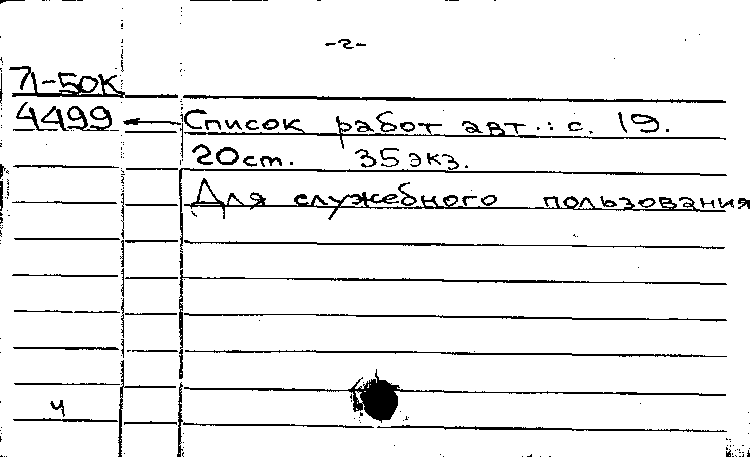 -2-
71-50К
4499 Список работ авт.: с. 19.
20см. 35экз.
Для служебного пользования
ч